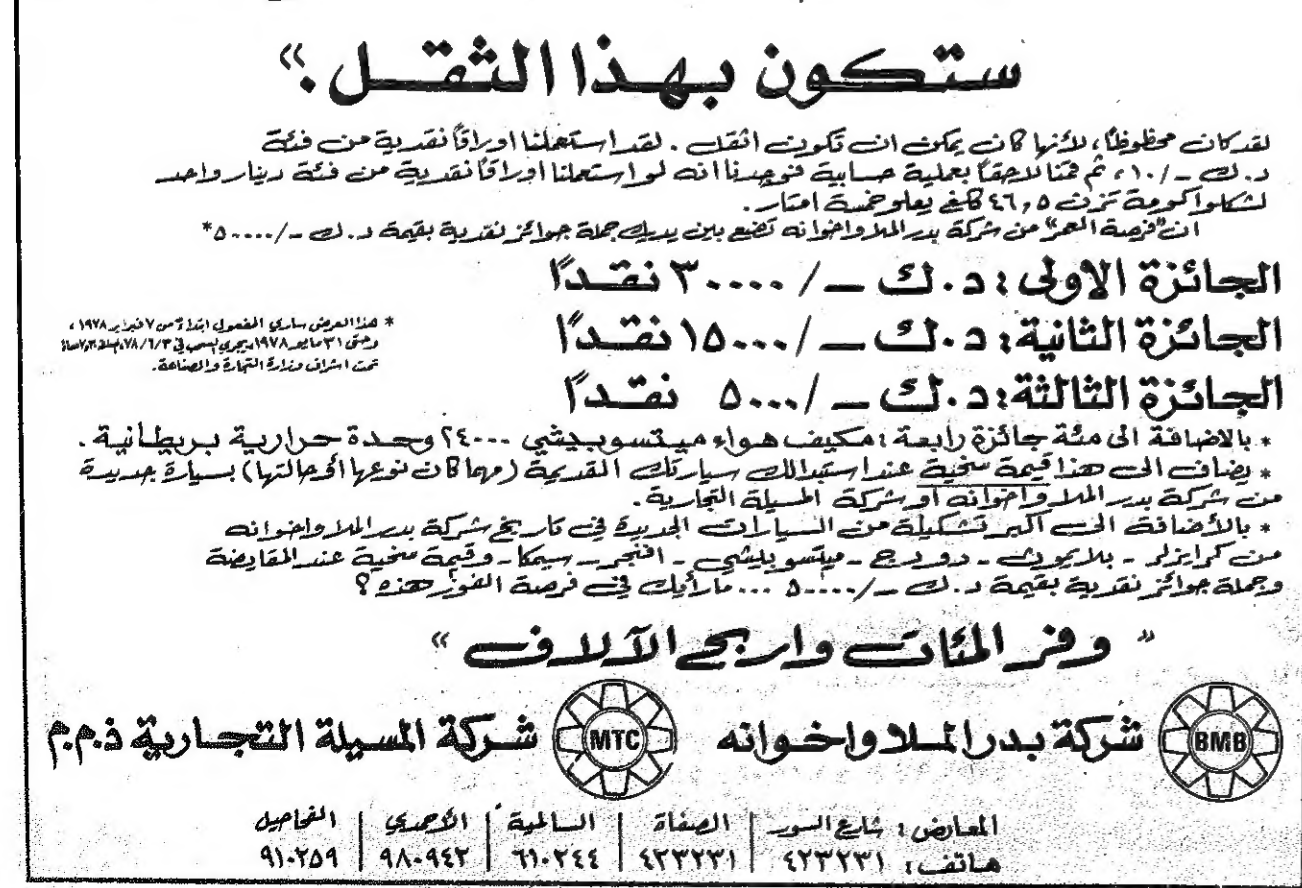 ستكون بهذا الثقل.»
لقد كان محظوظاً، لأنها كان يمكن ان تكون اثقل. لقد استعملنا اوراقاً نقدية من فئة
د.ك -/١٠، ثم قمنا لاحقاً بعملية حسابية فوجدنا انه لو استعملنا اوراقاً نقدية من فئة دينار واحد
لشكلوا كومة تزن ٤٦,٥ كلغ يعلو خمسة امتار.
ان "فرصة العمر" من شركة بدر الملا واخوانه تضع بين يديك جملة جوائز نقدية بقيمة د.ك -/٥٠٠٠٠*
الجائزة الاولى: د.ك -/٣٠٠٠٠ نقداً
الجائزة الثانية: د.ك -/١٥٠٠٠ نقداً
الجائزة الثالثة: د.ك -/٥٠٠٠ نقداً
* هذا العرض ساري المفعول ابتداءً من ٧ فبراير ١٩٧٨،
وحتى ٣١ مايو ١٩٧٨ ويجري السحب في ٧٨/٦/٣
تحت اشراف وزارة التجارة والصناعة.
* بالاضافة الى مئة جائزة رابعة: مكيف هواء ميتسوبيشي ٢٤٠٠٠ وحدة حرارية بريطانية.
* يضاف الى هذا قيمة سخية عند استبدالك سيارتك القديمة (مهما كان نوعها أو حالتها) بسيارة جديدة
من شركة بدر الملا واخوانه او شركة المسيلة التجارية.
* بالأضافة الى اكبر تشكيلة من السيارات الجديدة في تاريخ شركة بدر الملا واخوانه
من كرايزلر - بلايموث - دودج - ميتسوبيشي - افنجر - سيمكا - وقيمة سخية عند المقايضة
وجملة جوائز نقدية بقيمة د.ك -/٥٠٠٠٠ ... ما رأيك في فرصة الفوز هذه؟
" وفر المئات واربح الآلاف "
BMB شركة بدر الملا واخوانه MTC شركة المسيلة التجارية ذ.م.م
المعارض: شارع السور | الصفاة | السالمية | الأحمدي | الفحاحيل
هاتف: ٤٢٣٢٣١ | ٤٢٣٢٣١ | ٦١٠٢٤٤ | ٩٨٠٩٤٢ | ٩١٠٢٥٩